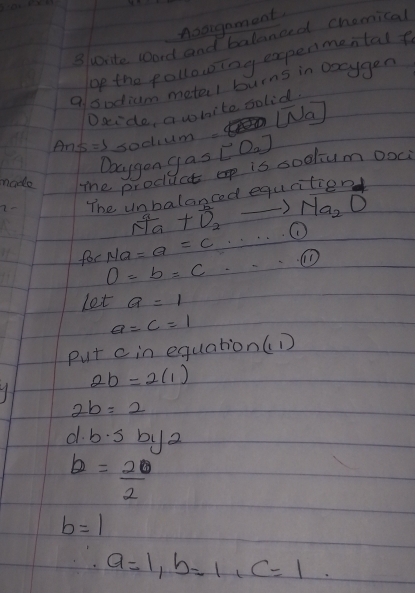 Assignment.
3 Write word and balanced chemical
of the following experimental
a. sodium metal burns in oxygen
Oxide, a white solid.
Ans => sodium = [Na]
Oxygen gas [O2]
the product is sodium Oxi
The unbalanced equation
a b
Na + O2 → Na2O
for Na = a = c ..... (i)
O = b = c - . . . (ii)
let a = 1
a = c = 1
put c in equation (11)
2b = 2(1)
2b = 2
d.b.s by 2
b = 20
2
b = 1
∴ a=1, b=1, c=1.